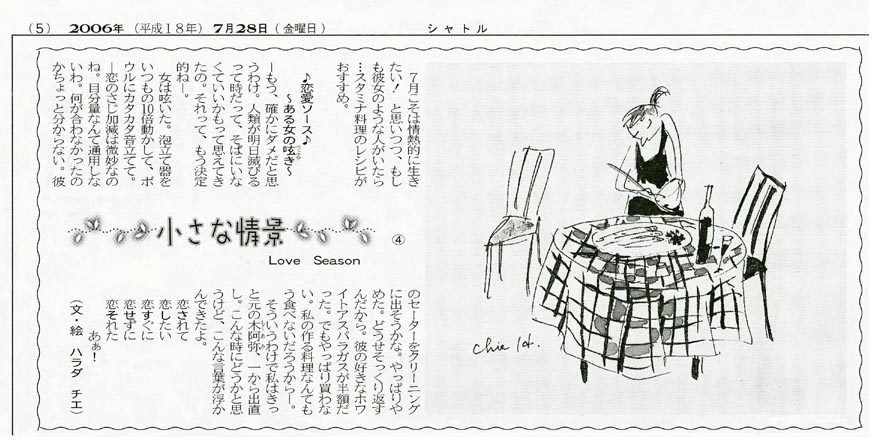 (5) 2006年 (平成18年) 7月28日 (金曜日)
シャトル
７月こそは情熱的に生き
たい！　と思いつつ、もし
も彼女のような人がいたら
…スタミナ料理のレシピが
おすすめ。
♪恋愛ソース♪
～ある女の呟き～
つぶや
―もう、確かにダメだと思
うわけ。人類が明日滅びる
って時だって、そばにいな
くていいかもって思えてき
たの。それって、もう決定
的ね―。
女は呟いた。泡立て器を
いつもの10倍動かして、ボ
ウルにカタカタ音立てて。
―恋のさじ加減は微妙なの
ね。目分量なんて通用しな
いわ。何が合わなかったの
かちょっと分からない。彼
小さな情景
④
Love Season
のセーターをクリーニング
に出そうかな。やっぱりや
めた。どうせそっくり返す
んだから。彼の好きなホワ
イトアスパラガスが半額だ
った。でもやっぱり買わな
い。私の作る料理なんても
う食べないだろうから―。
そういうわけで私はきっ
と元の木阿弥、一から出直
もくあみ
し。こんな時にどうかと思
うけど、こんな言葉が浮か
んできたよ。
恋されて
恋したい
恋すぐに
恋せずに
恋それた
あぁ！
（文・絵　ハラダ　チエ）
Chie H.